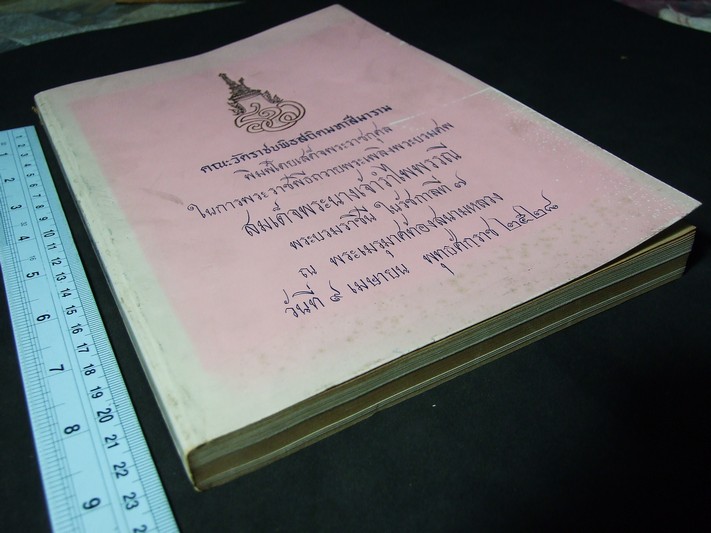 คณะวัดราชบพิธสถิตมหาสีมาราม
พิมพ์โดยเสด็จพระราชกุศล
ในการพระราชพิธีถวายพระเพลิงพระบรมศพ
สมเด็จพระนางเจ้ารำไพพรรณี
พระบรมราชินี ในรัชกาลที่ ๗
ณ พระเมรุมาศท้องสนามหลวง
วันที่ ๙ เมษายน พุทธศักราช ๒๕๒๘
1 2 3 4 5 6 7 8 9
1 2 3 4 5 6 7 8 9 10 11 12 13 14 15 16 17 18 19 20 21 22 23